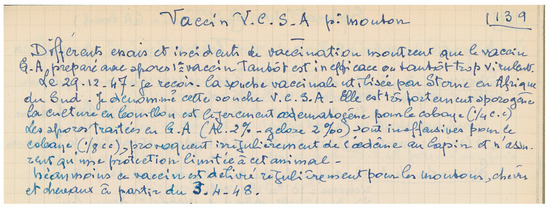 Vaccin V.C.S.A pr mouton
139
Différents essais et incidents de vaccination montrent que le vaccin
G.A, préparé avec spores 1° vaccin tantôt est inefficace ou tantôt trop virulent.
Le 29-12-47 je reçois la souche vaccinale utilisée par Sterne en Afrique
du Sud. Je dénomme cette souche V.C.S.A. Elle est très fortement sporogène
la culture en bouillon est légèrement œdematogène pour le cobaye (1/4 c.c)
Les spores traitées en G.A (Al. 2% - gelose 2%00) sont inoffensives pour le
cobaye (1/8 cc), provoquent irrégulièrement de l'œdème au lapin et n'assu-
rent qu'une protection limitée à cet animal.
Néanmoins ce vaccin est délivré régulièrement pour les moutons, chèvr
et chevaux à partir du 3-4-48.